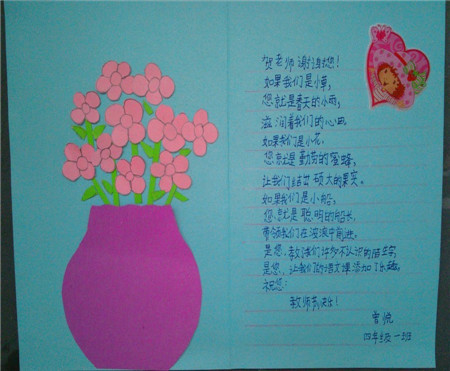 贺老师谢谢您！
如果我们是小草，
您就是春天的小雨，
滋润着我们的心田。
如果我们是小花，
您就是勤劳的蜜蜂，
让我们结出硕大的果实。
如果我们是小船，
您就是聪明的船长，
带领我们在波浪中前进。
是您，教我们许多不认识的生字，
是您，让我们的语文课添加了乐趣。
祝您：
教师节快乐！
四年级一班